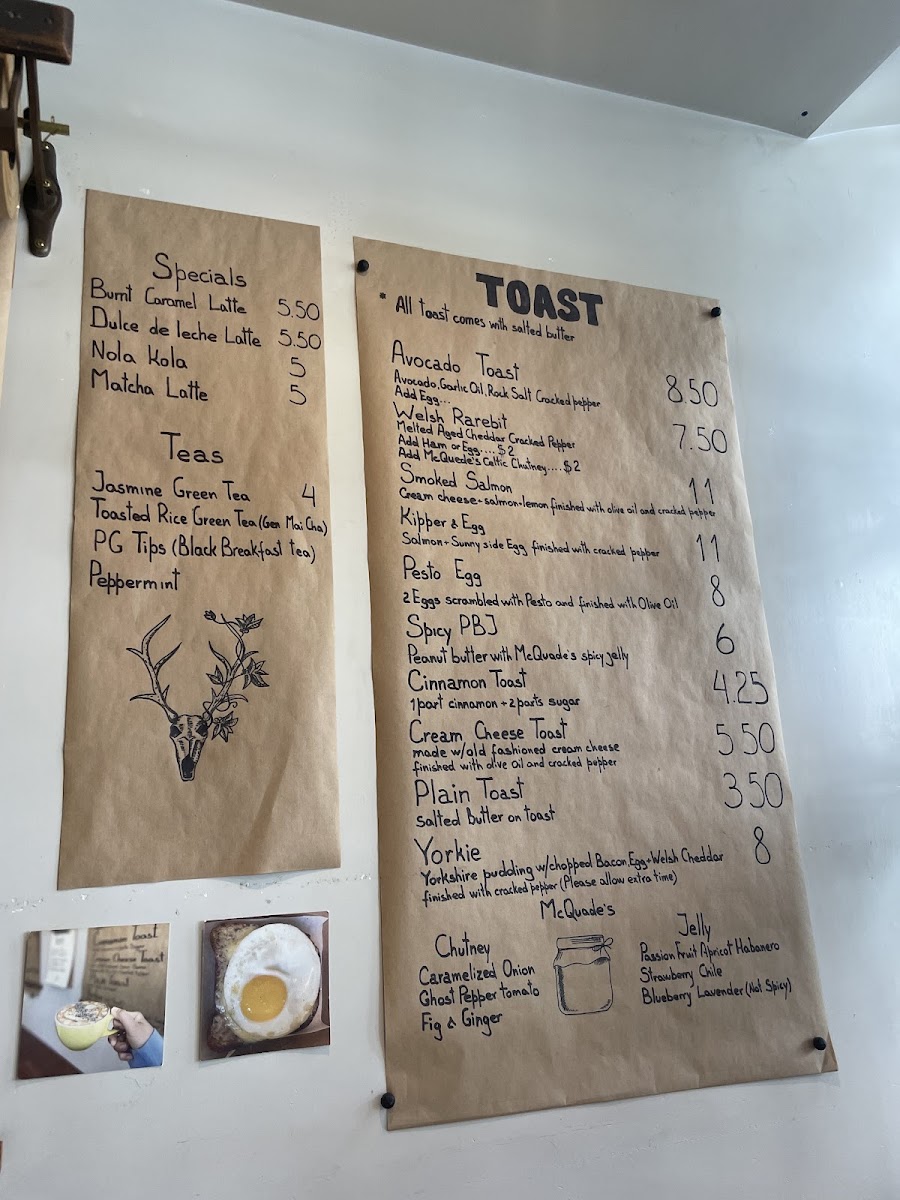 Specials
Burnt Caramel Latte 5.50
Dulce de leche Latte 5.50
Nola Kola 5
Matcha Latte 5
Teas
Jasmine Green Tea 4
Toasted Rice Green Tea (Gen Mai Cha)
PG Tips (Black Breakfast tea)
Peppermint
TOAST
* All toast comes with salted butter
Avocado Toast 8.50
Avocado, Garlic Oil, Rock Salt Cracked pepper
Add Egg...
Welsh Rarebit 7.50
Melted Aged Cheddar Cracked Pepper
Add Ham or Egg.... $2
Add McQuede's Celtic Chutney.... $2
Smoked Salmon 11
Cream cheese + salmon + lemon finished with olive oil and cracked pepper
Kipper & Egg 11
Salmon + Sunny side Egg finished with cracked pepper
Pesto Egg 8
2 Eggs scrambled with Pesto and finished with Olive Oil
Spicy PBJ 6
Peanut butter with McQuade's spicy jelly
Cinnamon Toast 4.25
1 part cinnamon + 2 parts sugar
Cream Cheese Toast 5 50
made w/old fashioned cream cheese
finished with olive oil and cracked pepper
Plain Toast 3 50
salted Butter on toast
Yorkie 8
Yorkshire pudding w/chopped Bacon, Egg + Welsh Cheddar
finished with cracked pepper (Please allow extra time)
McQuade's
Chutney
Caramelized Onion
Ghost Pepper tomato
Fig & Ginger
Jelly
Passion Fruit Apricot Habanero
Strawberry Chile
Blueberry Lavender (Not Spicy)
Cinnamon Toast
Cream Cheese Toast